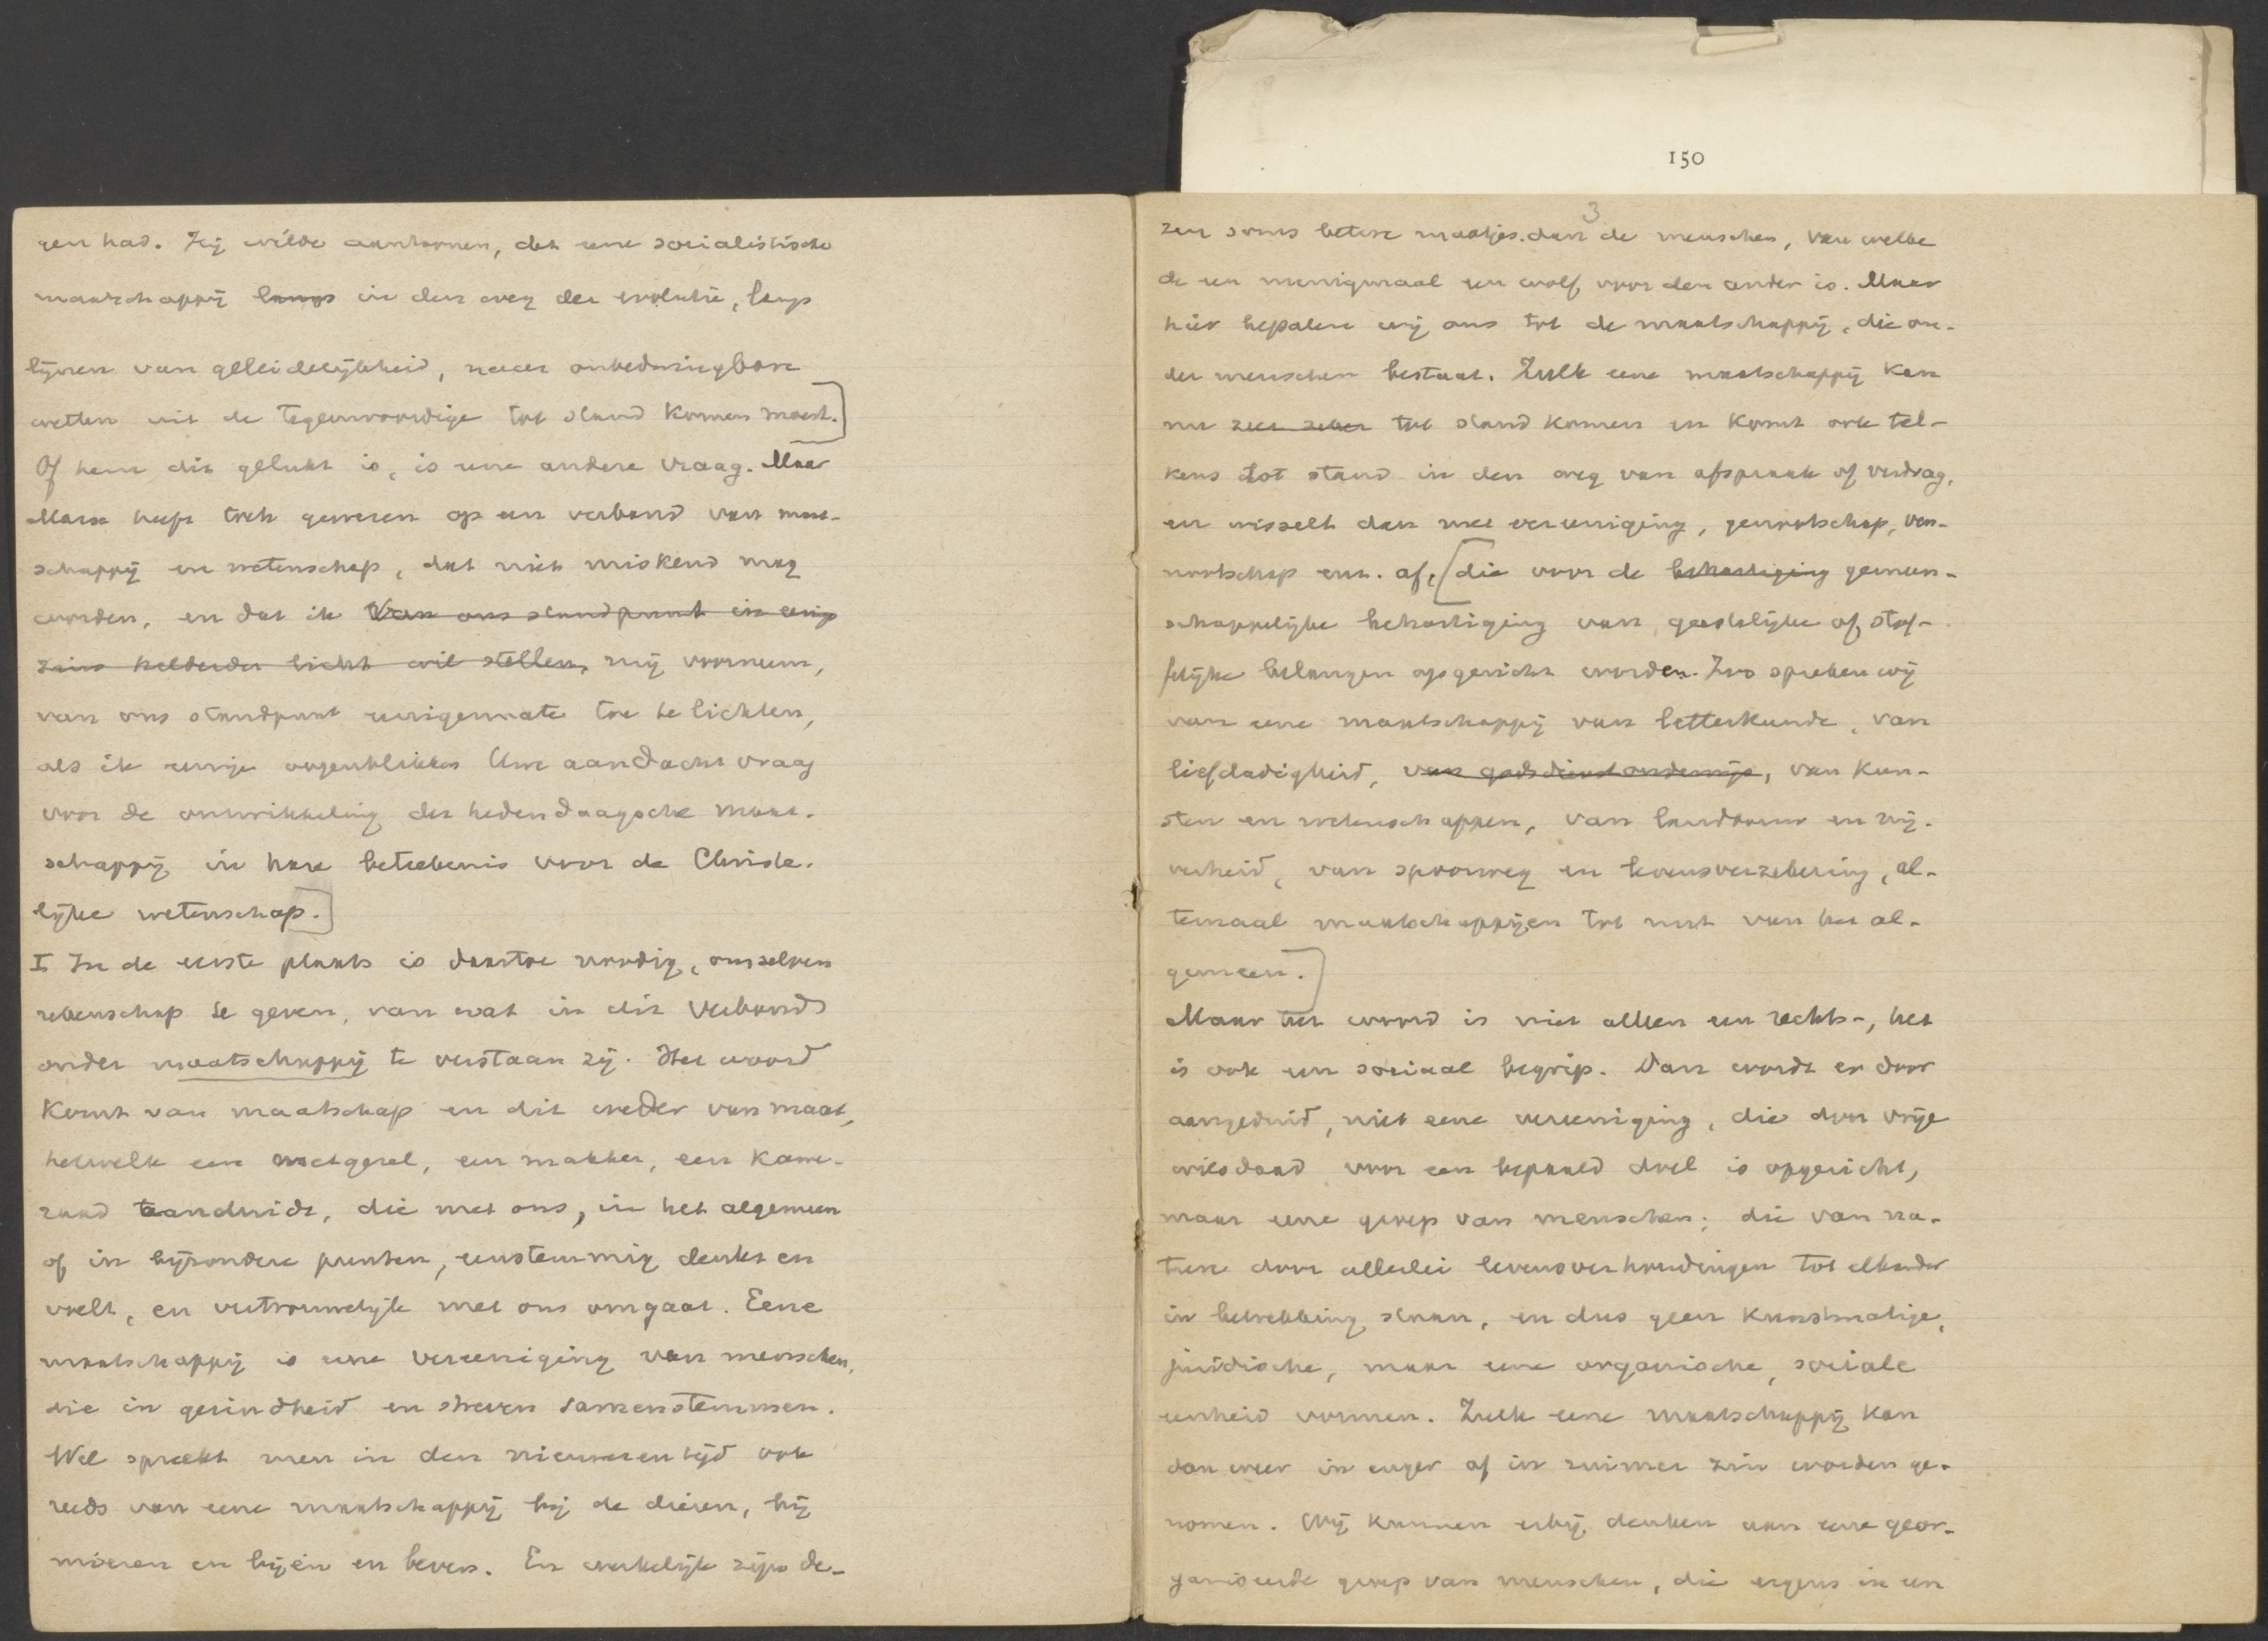 gen had. Hij wilde aantoonen, dat eene socialistische
maatschappij langs in den weg der evolutie, langs
lijnen van geleidelijkheid, naar onbedwingbare
wetten uit de tegenwoordige tot stand komen moest.]
Of hem dit gelukt is, is eene andere vraag. Maar
Marx heeft toch gewezen op een verband van maat-
schappij en wetenschap, dat niet miskend mag
worden, en dat ik van ons standpunt in eenigs
zins helderder licht wil stellen, mij voorneem,
van ons standpunt eenigermate toe te lichten,
als ik eenige oogenblikken Uwe aandacht vraag
voor de ontwikkeling der hedendaagsche maat-
schappij in hare beteekenis voor de Christe-
lijke wetenschap.]
I In de eerste plaats is daartoe noodig, onszelven
rekenschap te geven, van wat in dit verband
onder maatschappij te verstaan zij. Het woord
komt van maatschap en dit weder van maat,
hetwelk een metgezel, een makker, een kame-
raad aanduidt, die met ons, in het algemeen
of in bijzondere punten, eenstemmig denkt en
voelt, en vertrouwelijk met ons omgaat. Eene
maatschappij is eene vereeniging van menschen,
die in gezindheid en streven samenstemmen.
Wel spreekt men in den nieuweren tijd ook
reeds van eene maatschappij bij de dieren, bij
mieren en bijen en bevers. En werkelijk zijn de-
150
3
zen soms betere maatjes dan de menschen, van welke
de een menigmaal een wolf voor den ander is. Maar
hier bepalen wij ons tot de maatschappij, die on-
der menschen bestaat. Zulk eene maatschappij kan
nu zeer zeker tot stand komen en komt ook tel-
kens tot stand in den weg van afspraak of verdrag,
en wisselt dan met vereeniging, genootschap, ven-
nootschap enz. af, [die voor de behartiging gemeen-
schappelijke behartiging van geestelijke of stof-
felijke belangen opgericht worden. Zoo spreken wij
van eene maatschappij van letterkunde, van
liefdadigheid, van godsdienstonderwijs, van kun-
sten en wetenschappen, van landbouw en nij-
verheid, van spoorweg en levensverzekering, al-
temaal maatschappijen tot nut van het al-
gemeen.]
Maar het woord is niet alleen een rechts-, het
is ook een sociaal begrip. Dan wordt er door
aangeduid, niet eene vereeniging, die door vrije
wilsdaad voor een bepaald doel is opgericht,
maar eene groep van menschen, die van na-
ture door allerlei levensverhoudingen tot elkander
in betrekking staan, en dus geen kunstmatige,
juridische, maar eene organische, sociale
eenheid vormen. Zulk eene maatschappij kan
dan weer in enger of in ruimer zin worden ge-
nomen. Wij kunnen erbij denken aan eene geor-
ganiseerde groep van menschen, die ergens in een